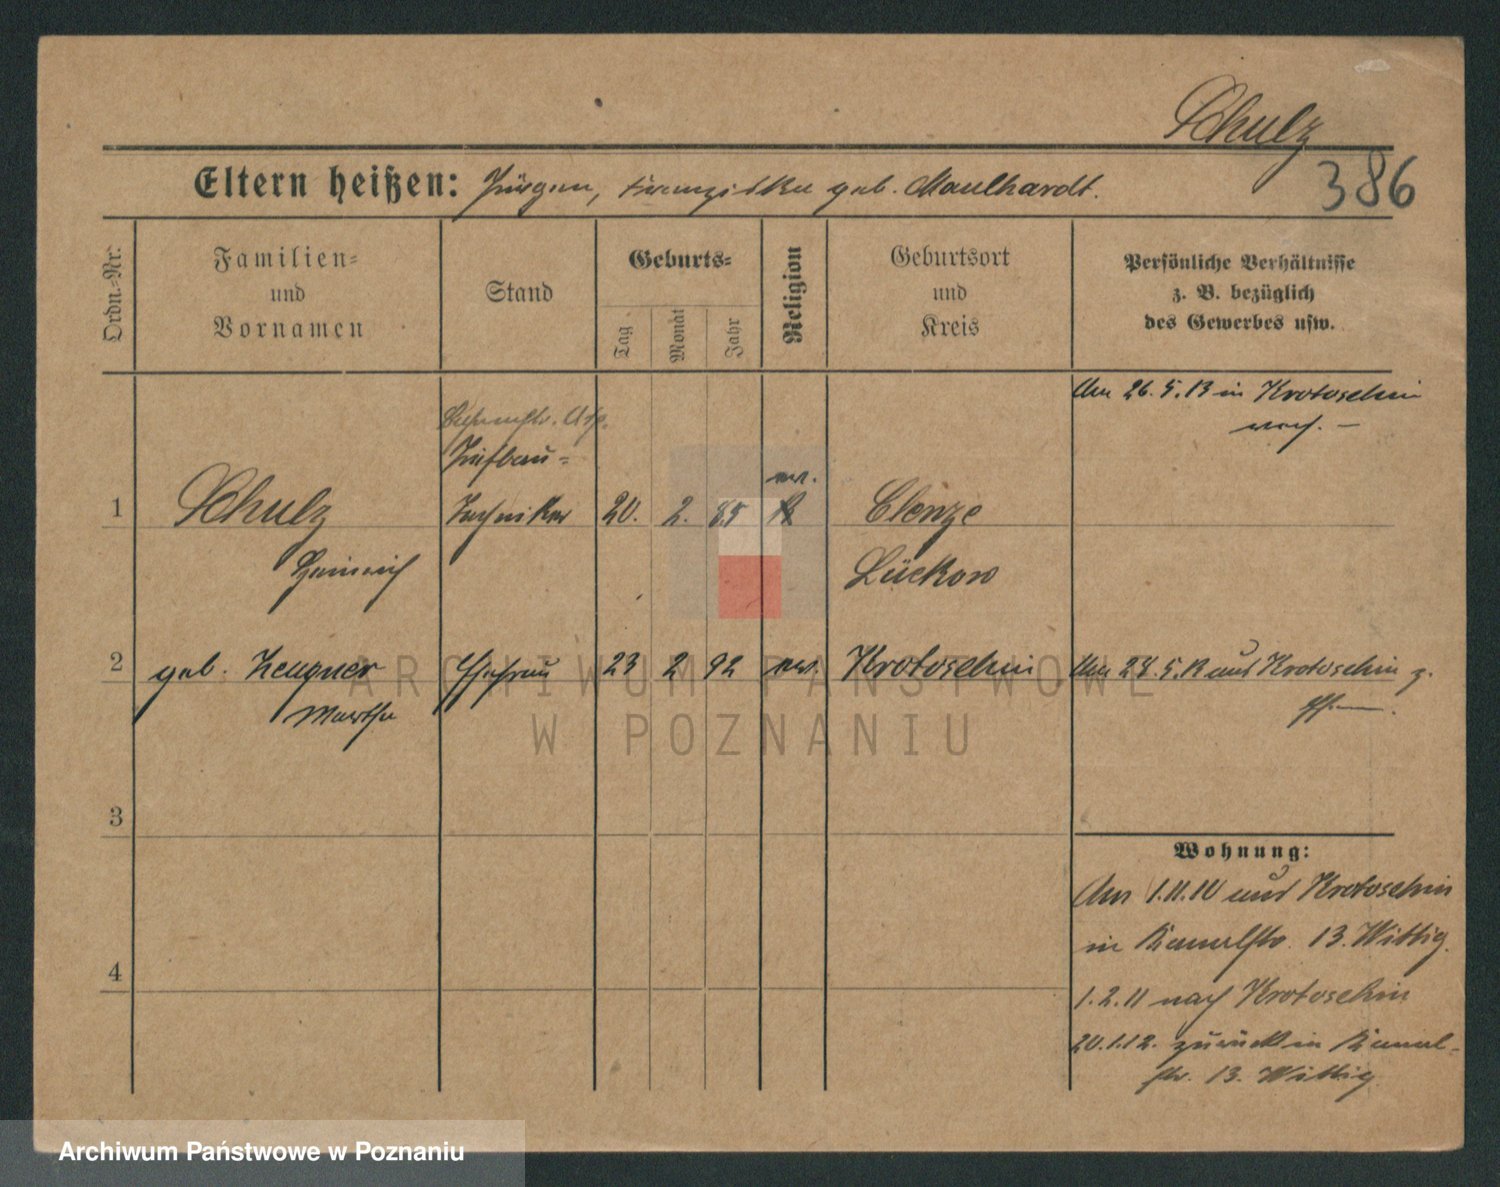 Schulz
386
Eltern heißen: Jürgen, Franziska geb. Maulhardt.
Ordn.-Nr.
Familien-
und
Vornamen
Stand
Geburts-
Tag
Monat
Jahr
Religion
Geburtsort
und
Kreis
Persönliche Verhältnisse
z. B. bezüglich
des Gewerbes usw.
Am 26.5.13 in Krotoschin
1
Schulz
Heinrich
Tiefbau-
Techniker
20. 2. 85
ev.
Clenze
Lückow
2
geb. Zeugner
Martha
Ehefrau
23 2 92
ev.
Krotoschin
Am 28.5.13 aus Krotoschin z.
3
4
Wohnung:
Am 1.11.10 aus Krotoschin
in Kanalstr. 13. Wittig.
1.2.11 nach Krotoschin
20.1.12. zurück in Kanal-
str. 13. Wittig
ARCHIWUM PAŃSTWOWE
W POZNANIU
Archiwum Państwowe w Poznaniu